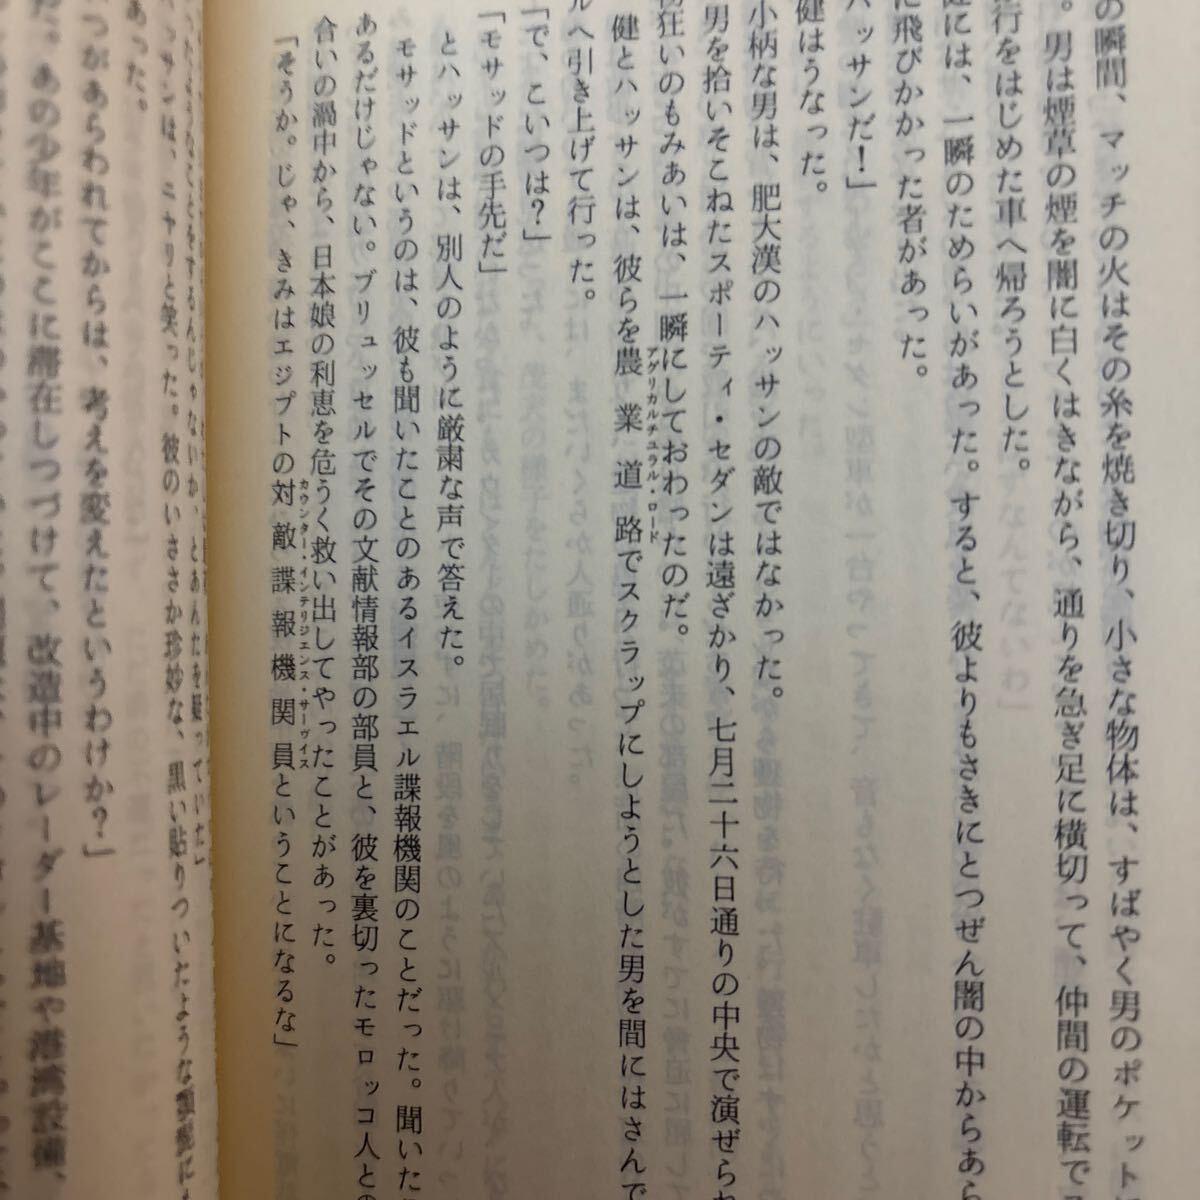 の瞬間、マッチの火はその糸を焼き切り、小さな物体は、すばやく男のポケット
。男は煙草の煙を闇に白くはきながら、通りを急ぎ足に横切って、仲間の運転で
行をはじめた車へ帰ろうとした。
健には、一瞬のためらいがあった。すると、彼よりもさきにとつぜん闇の中からあら
に飛びかかった者があった。
ハッサンだ！」
健はうなった。
小柄な男は、肥大漢のハッサンの敵ではなかった。
男を拾いそこねたスポーティ・セダンは遠ざかり、七月二十六日通りの中央で演ぜられ
狂いのもみあいは、一瞬にしておわったのだ。
健とハッサンは、彼らを農業道路でスクラップにしようとした男を間にはさんで
アグリカルチュラル・ロード
ルへ引き上げて行った。
「で、こいつは？」
「モサッドの手先だ」
とハッサンは、別人のように厳粛な声で答えた。
モサッドというのは、彼も聞いたことのあるイスラエル諜報機関のことだった。聞いた
あるだけじゃない。ブリュッセルでその文献情報部の部員と、彼を裏切ったモロッコ人との
合いの渦中から、日本娘の利恵を危うく救い出してやったことがあった。
「そうか。じゃ、きみはエジプトの対敵諜報機関員ということになるな」
カウンター・インテリジェンス・サーヴィス
ったようなことをするんじゃないか、とあんたを疑っていた」
ッサンは、ニヤリと笑った。彼のいささか珍妙な、黒い貼りついたような頭髪に
あった。
つがあらわれてからは、考えを変えたというわけか？」
だ。あの少年がここに滞在しつづけて、改造中のレーダー基地や港湾設備、